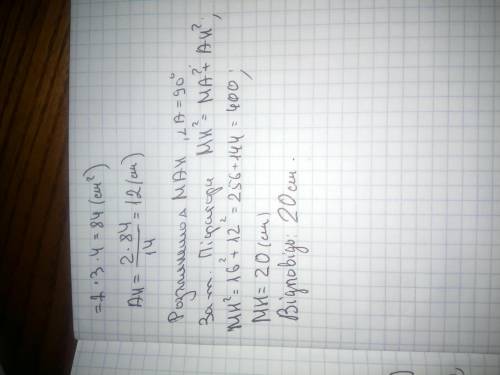 = 7 · 3 · 4 = 84 (см²)
AK = 2 · 84 / 14 = 12 (см)
Розглянемо △ MAK, ∠A = 90°
За т. Піфагора MK² = MA² + AK²;
MK² = 16² + 12² = 256 + 144 = 400;
MK = 20 (см)
Відповідь: 20 см.